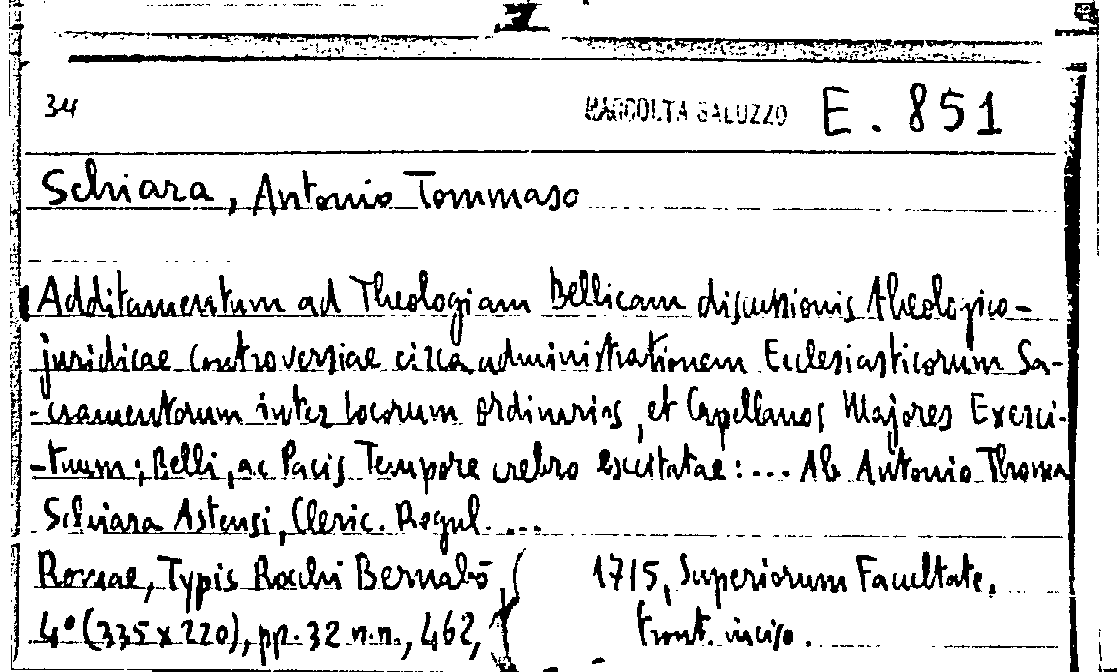 34 RACCOLTA SALUZZO E. 851
Schiara, Antonio Tommaso
Additamentum ad Theologiam Bellicam discussionis theologico-
juridicae controversiae circa administrationem Ecclesiasticorum Sa-
-cramentorum inter locorum ordinarios, et Capellanos Majores Exerci-
-tuum; Belli, ac Pacis Tempore crebro escitatae: ... Ab Antonio Thoma
Schiara Astensi, Cleric. Regul. ...
Romae, Typis Rochi Bernabò 1715, Superiorum Facultate,
4° (335 x 220), pp. 32 n.n., 462, front. inciso.